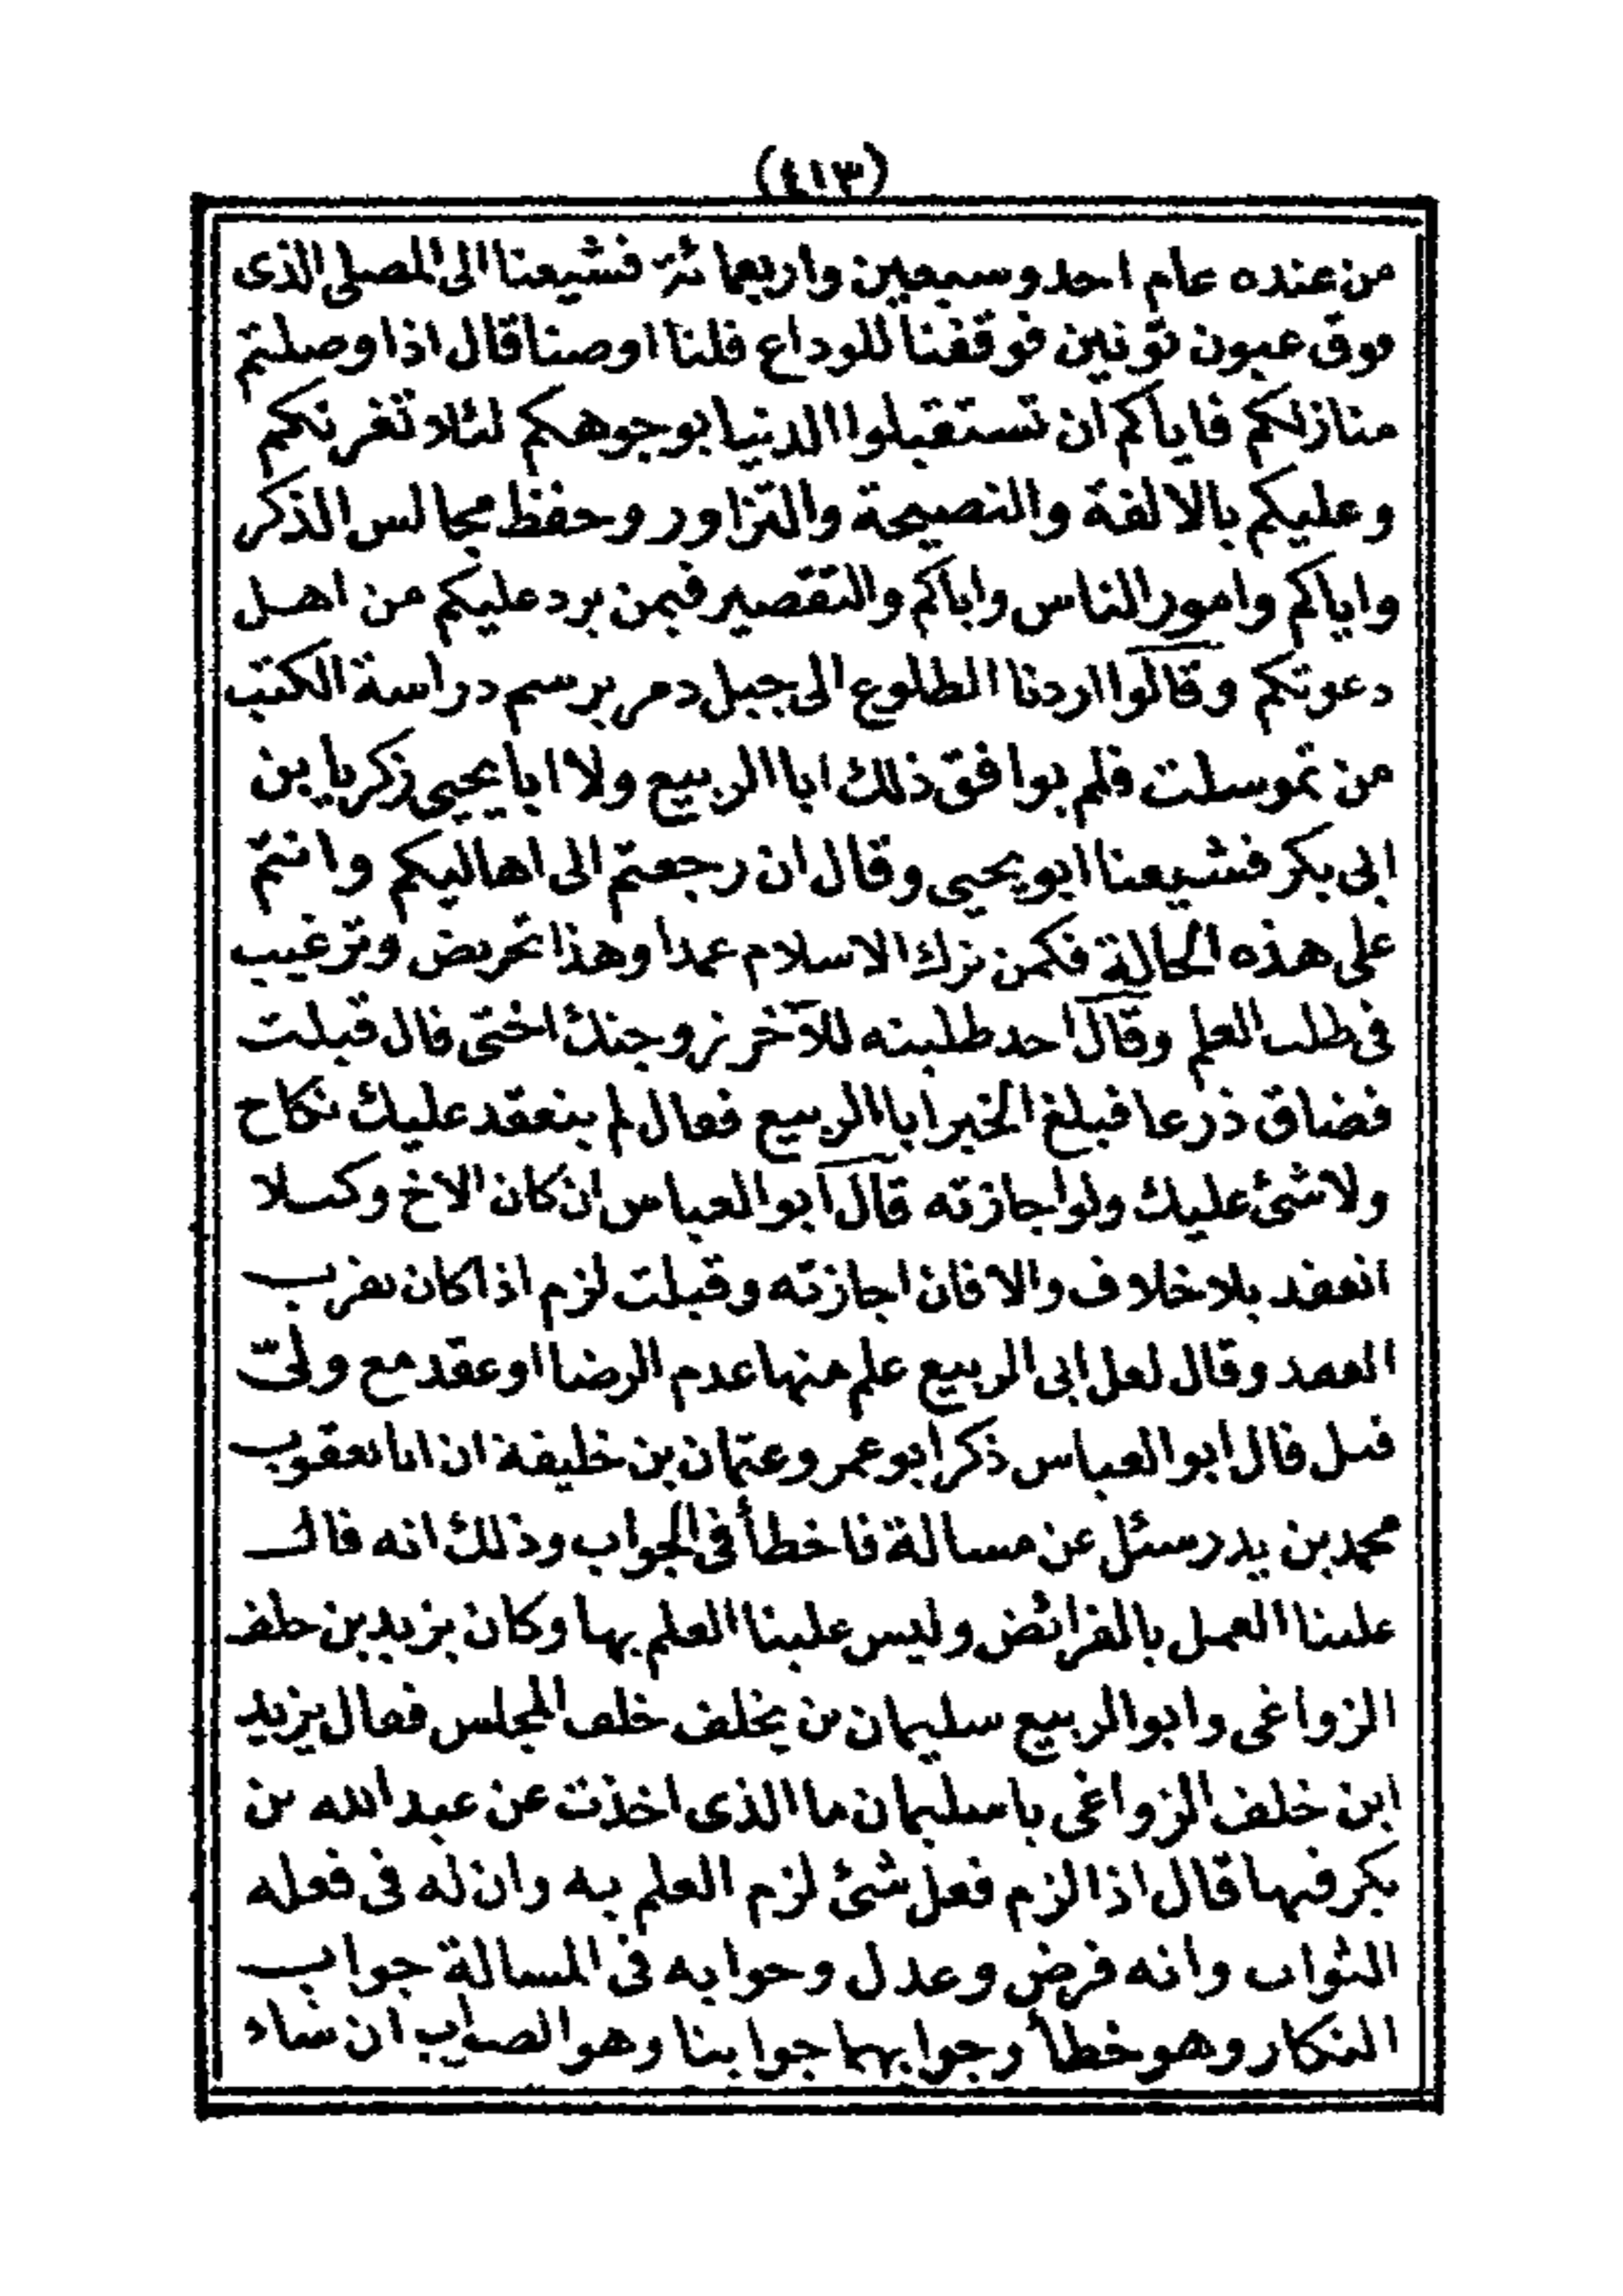 (٤١٣)
من عنده عام احد وسبعين واربعمائة فشيعنا الى المصلى الذى
فوق عيون تونين فوقفنا للوداع قلنا اوصنا قال اذا وصلتم
منازلكم فاياكم ان تستقبلوا الدنيا بوجوهكم لئلا تغرنكم
وعليكم بالالفة والنصيحة والتزاور وحفظ مجالس الذكر
واياكم وامور الناس واياكم والتقصير فيمن يرد عليكم من اهل
دعوتكم وقالوا اردنا الطلوع الى جبل دمر برسم دراسة الكتب
من تموسلت فلم يوافق ذلك ابا الربيع ولا ابا يحيى زكريا بن
ابى بكر فشيعنا ابو يحيى وقال ان رجعتم الى اهاليكم وانتم
على هذه الحالة فكمن ترك الاسلام عمدا وهذا تحريض وترغيب
فى طلب العلم وقال احد طلبته للآخر زوجتك اختى قال قبلت
فضاق ذرعا فبلغ الخبر ابا الربيع فقال لم ينعقد عليك نكاح
ولا شئ عليك ولو اجازته قال ابو العباس ان كان الاخ وكيلا
انعقد بلا خلاف والا فان اجازته وقبلت لزم اذا كان بقرب
العقد وقال لعل ابى الربيع علم منها عدم الرضا او عقد مع ولىّ
قبل قال ابو العباس ذكر ابو عمرو عثمان بن خليفة ان ابا يعقوب
محمد بن يدر سئل عن مسالة فاخطأ فى الجواب وذلك انه قال
علينا العمل بالفرائض وليس علينا العلم بها وكان يزيد بن خلف
الزواغى وابو الربيع سليمان بن يخلف خلف المجلس فقال يزيد
ابن خلف الزواغى يا سليمان ما الذى اخذت عن عبد الله بن
بكر فيها قال اذا لزم فعل شئ لزم العلم به وان له فى فعله
الثواب وانه فرض وعدل وجوابه فى المسالة جواب
النكار وهو خطأ وجوابهما جوابنا وهو الصواب ان شاء